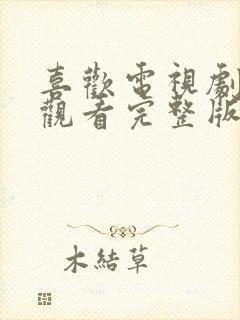 喜歡電視劇
觀看完整版
木結草